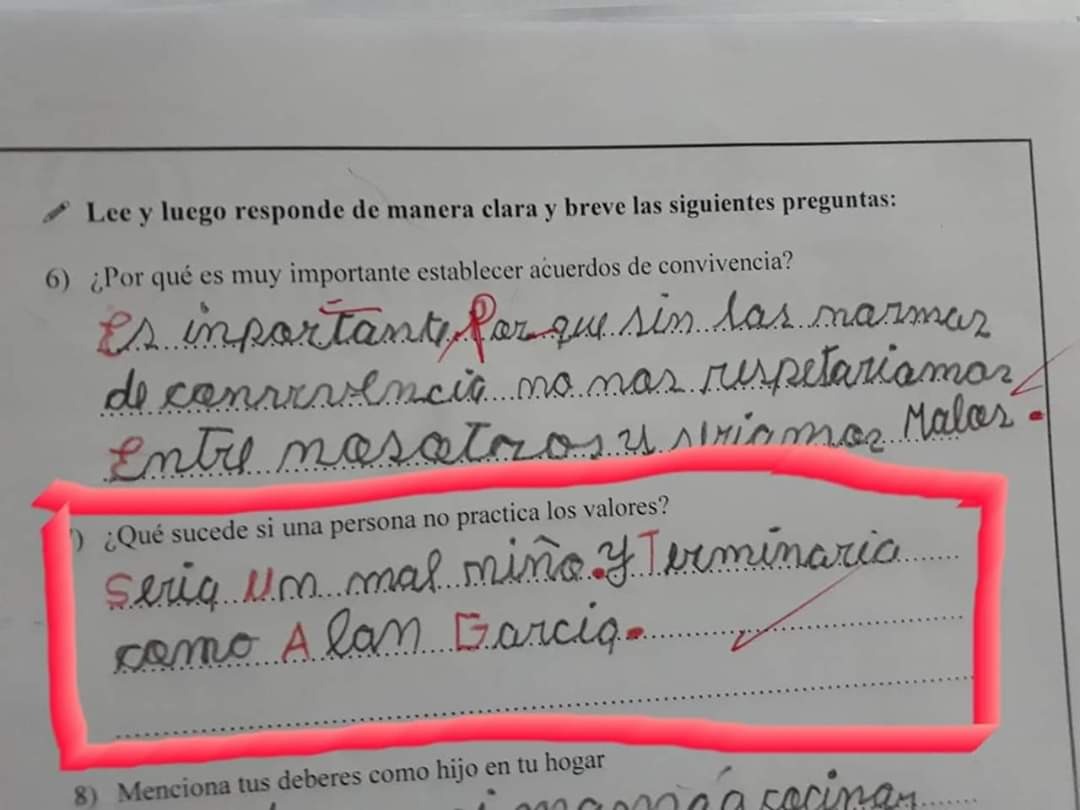 Lee y luego responde de manera clara y breve las siguientes preguntas:
6) ¿Por qué es muy importante establecer acuerdos de convivencia?
Es inportante Por que sin las normas
de convivencia no nos respetariamos
Entre nosotros y seriamos Malos.
) ¿Qué sucede si una persona no practica los valores?
Seria Un mal niño. y Terminaria
como Alan Garcia.
8) Menciona tus deberes como hijo en tu hogar
mamá a cocinar